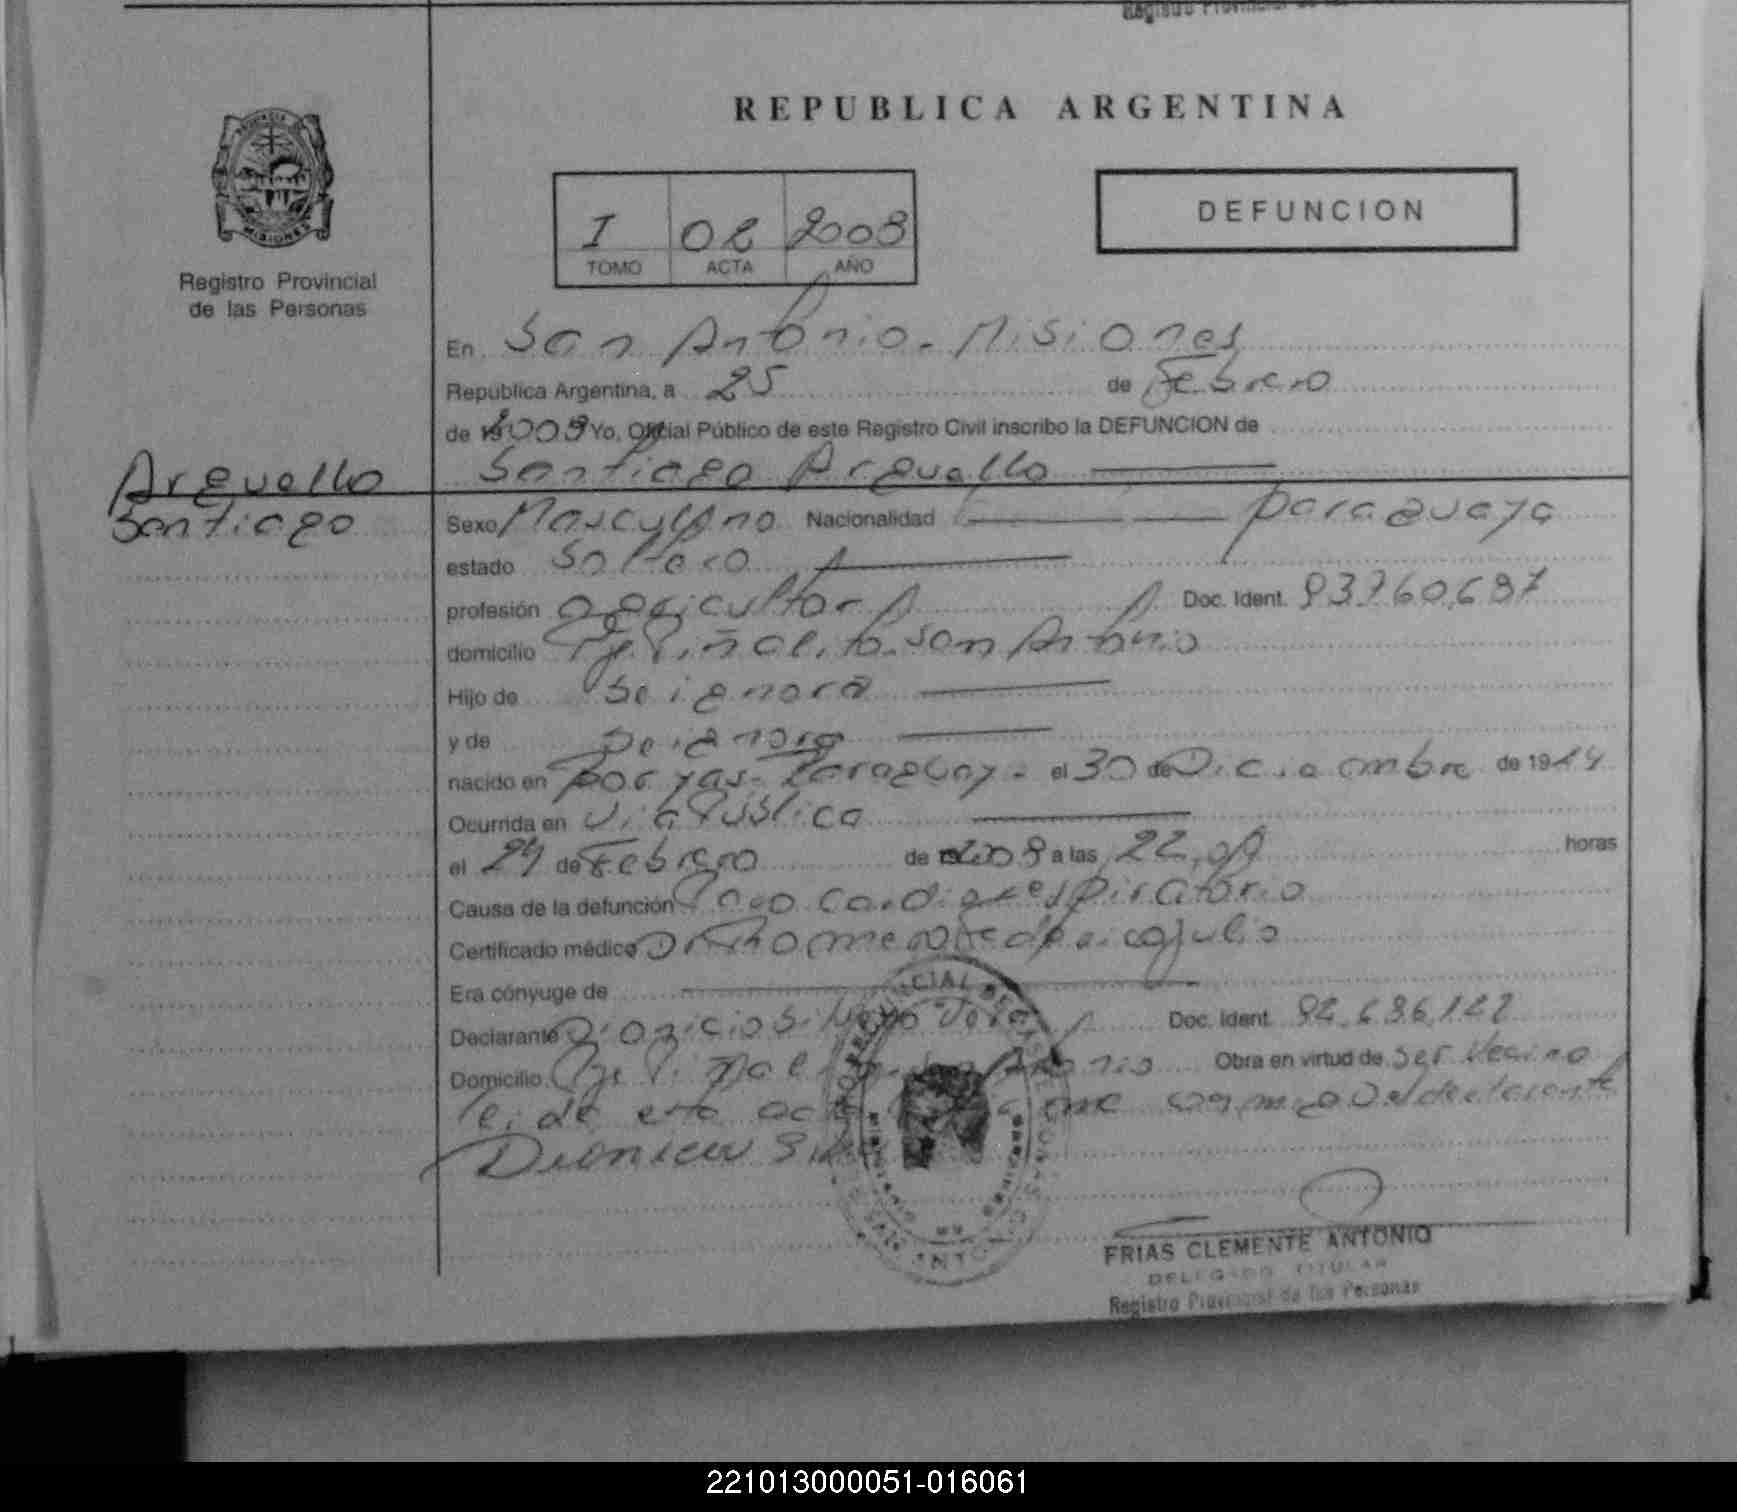 REPUBLICA ARGENTINA
PROVINCIA DE
MISIONES
Registro Provincial
de las Personas
I 02 2008
TOMO ACTA AÑO
DEFUNCION
En San Antonio - Misiones
República Argentina, a 25 de Febrero
de 2008 Yo, Oficial Público de este Registro Civil inscribo la DEFUNCION de
Santiago Arguello
Arguello
Santiago
Sexo Masculino Nacionalidad paraguaya
estado Soltero
profesión agricultor Doc. Ident. 93.760.697
domicilio Pje Piñalito San Antonio
Hijo de Se ignora
y de Se ignora
nacido en Paraguay - el 30 de Diciembre de 19
Ocurrida en via Pública
el 24 de Febrero de 2008 a las 22, horas
Causa de la defunción Paro Cardiorespiratorio
Certificado médico julio
Era cónyuge de
Declarante Dionicio Doc. Ident.
Domicilio Pje Piñalito San Antonio Obra en virtud de ser Vecino
Leida esta acta con migo el declarante
FRIAS CLEMENTE ANTONIO
DELEGADO TITULAR
Registro Provincial de las Personas
221013000051-016061